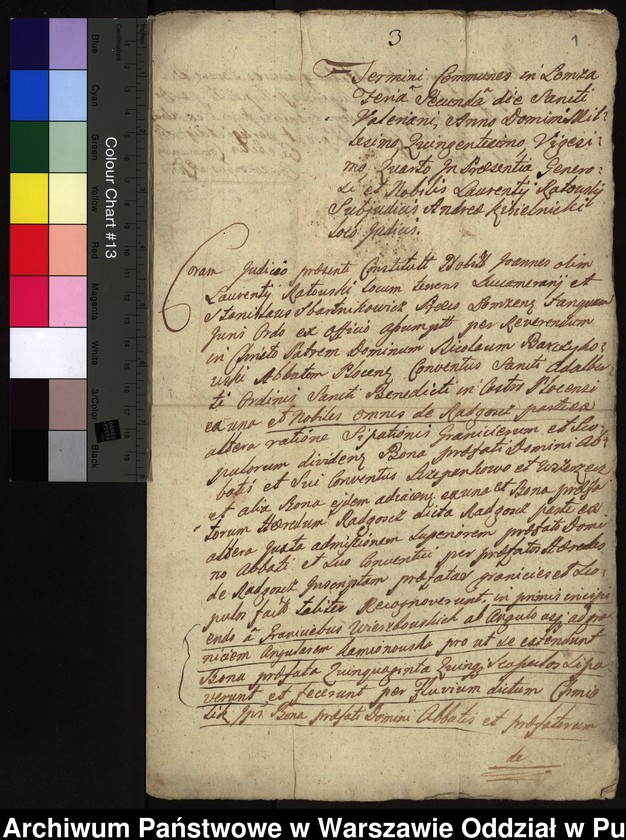 3
1
Termini Communes in Lomza
Feria Secunda die Sancti
Valeriani, Anno Domini Mil-
lesimo, Quingentesimo, Vigesi-
mo Quarto In Præsentia Genero-
si et Nobilis Laurentij Ratowsky
Subjudicis Andrea Kisielnicki
loco Judicis.
Coram Judicio præsenti Constituti Nobiles Joannes olim
Laurentij Ratouski locum tenens Succamerarij et
Stanislaus Bartnikowicz Lomzens Tanquam
Juris Ordo ex officio assumpti per Reverendum
in Christo Patrem Dominum Nicolaum
Abbatem Plocens Conventus Sancti Adalber
ti Ordinis Sancti Benedicti in Castro Plocensi
ex una et Nobiles omnes de Radgoszt parte ex
altera ratione Sipationis Granicierum et Sco
pulorum dividens Bona præfati Domini Ab-
batis et Sui Conventus Szczepankowo et
et alia Bona ejdem adiacens ex una et Bona præfa
torum Hæredum Radgoszt dicta Radgoszt parte ex
altera juxta admissionem superiorem præfato Domi
no Abbati et Suo Conventui per præfatos Hæredes
de Radgoszt Inscriptam præfatas granicies et Sco-
pulos
Recognoverunt, in primis incipi
endo à Graniciebus Wierzbouskich ab Angulo
niciem Angularem Kamionouska pro ut se extendunt
Bona præfata Quinquaginta Quinq Scopulos Sipa-
verunt et fecerunt per Fluvium dictum
Bona præfati Domini Abbatis et præfatorum
de
Colour Chart #13
Blue
Cyan
Green
Yellow
Red
Magenta
White
3/Color
Black
Centimetres
Archiwum Państwowe w Warszawie Oddział w Pu